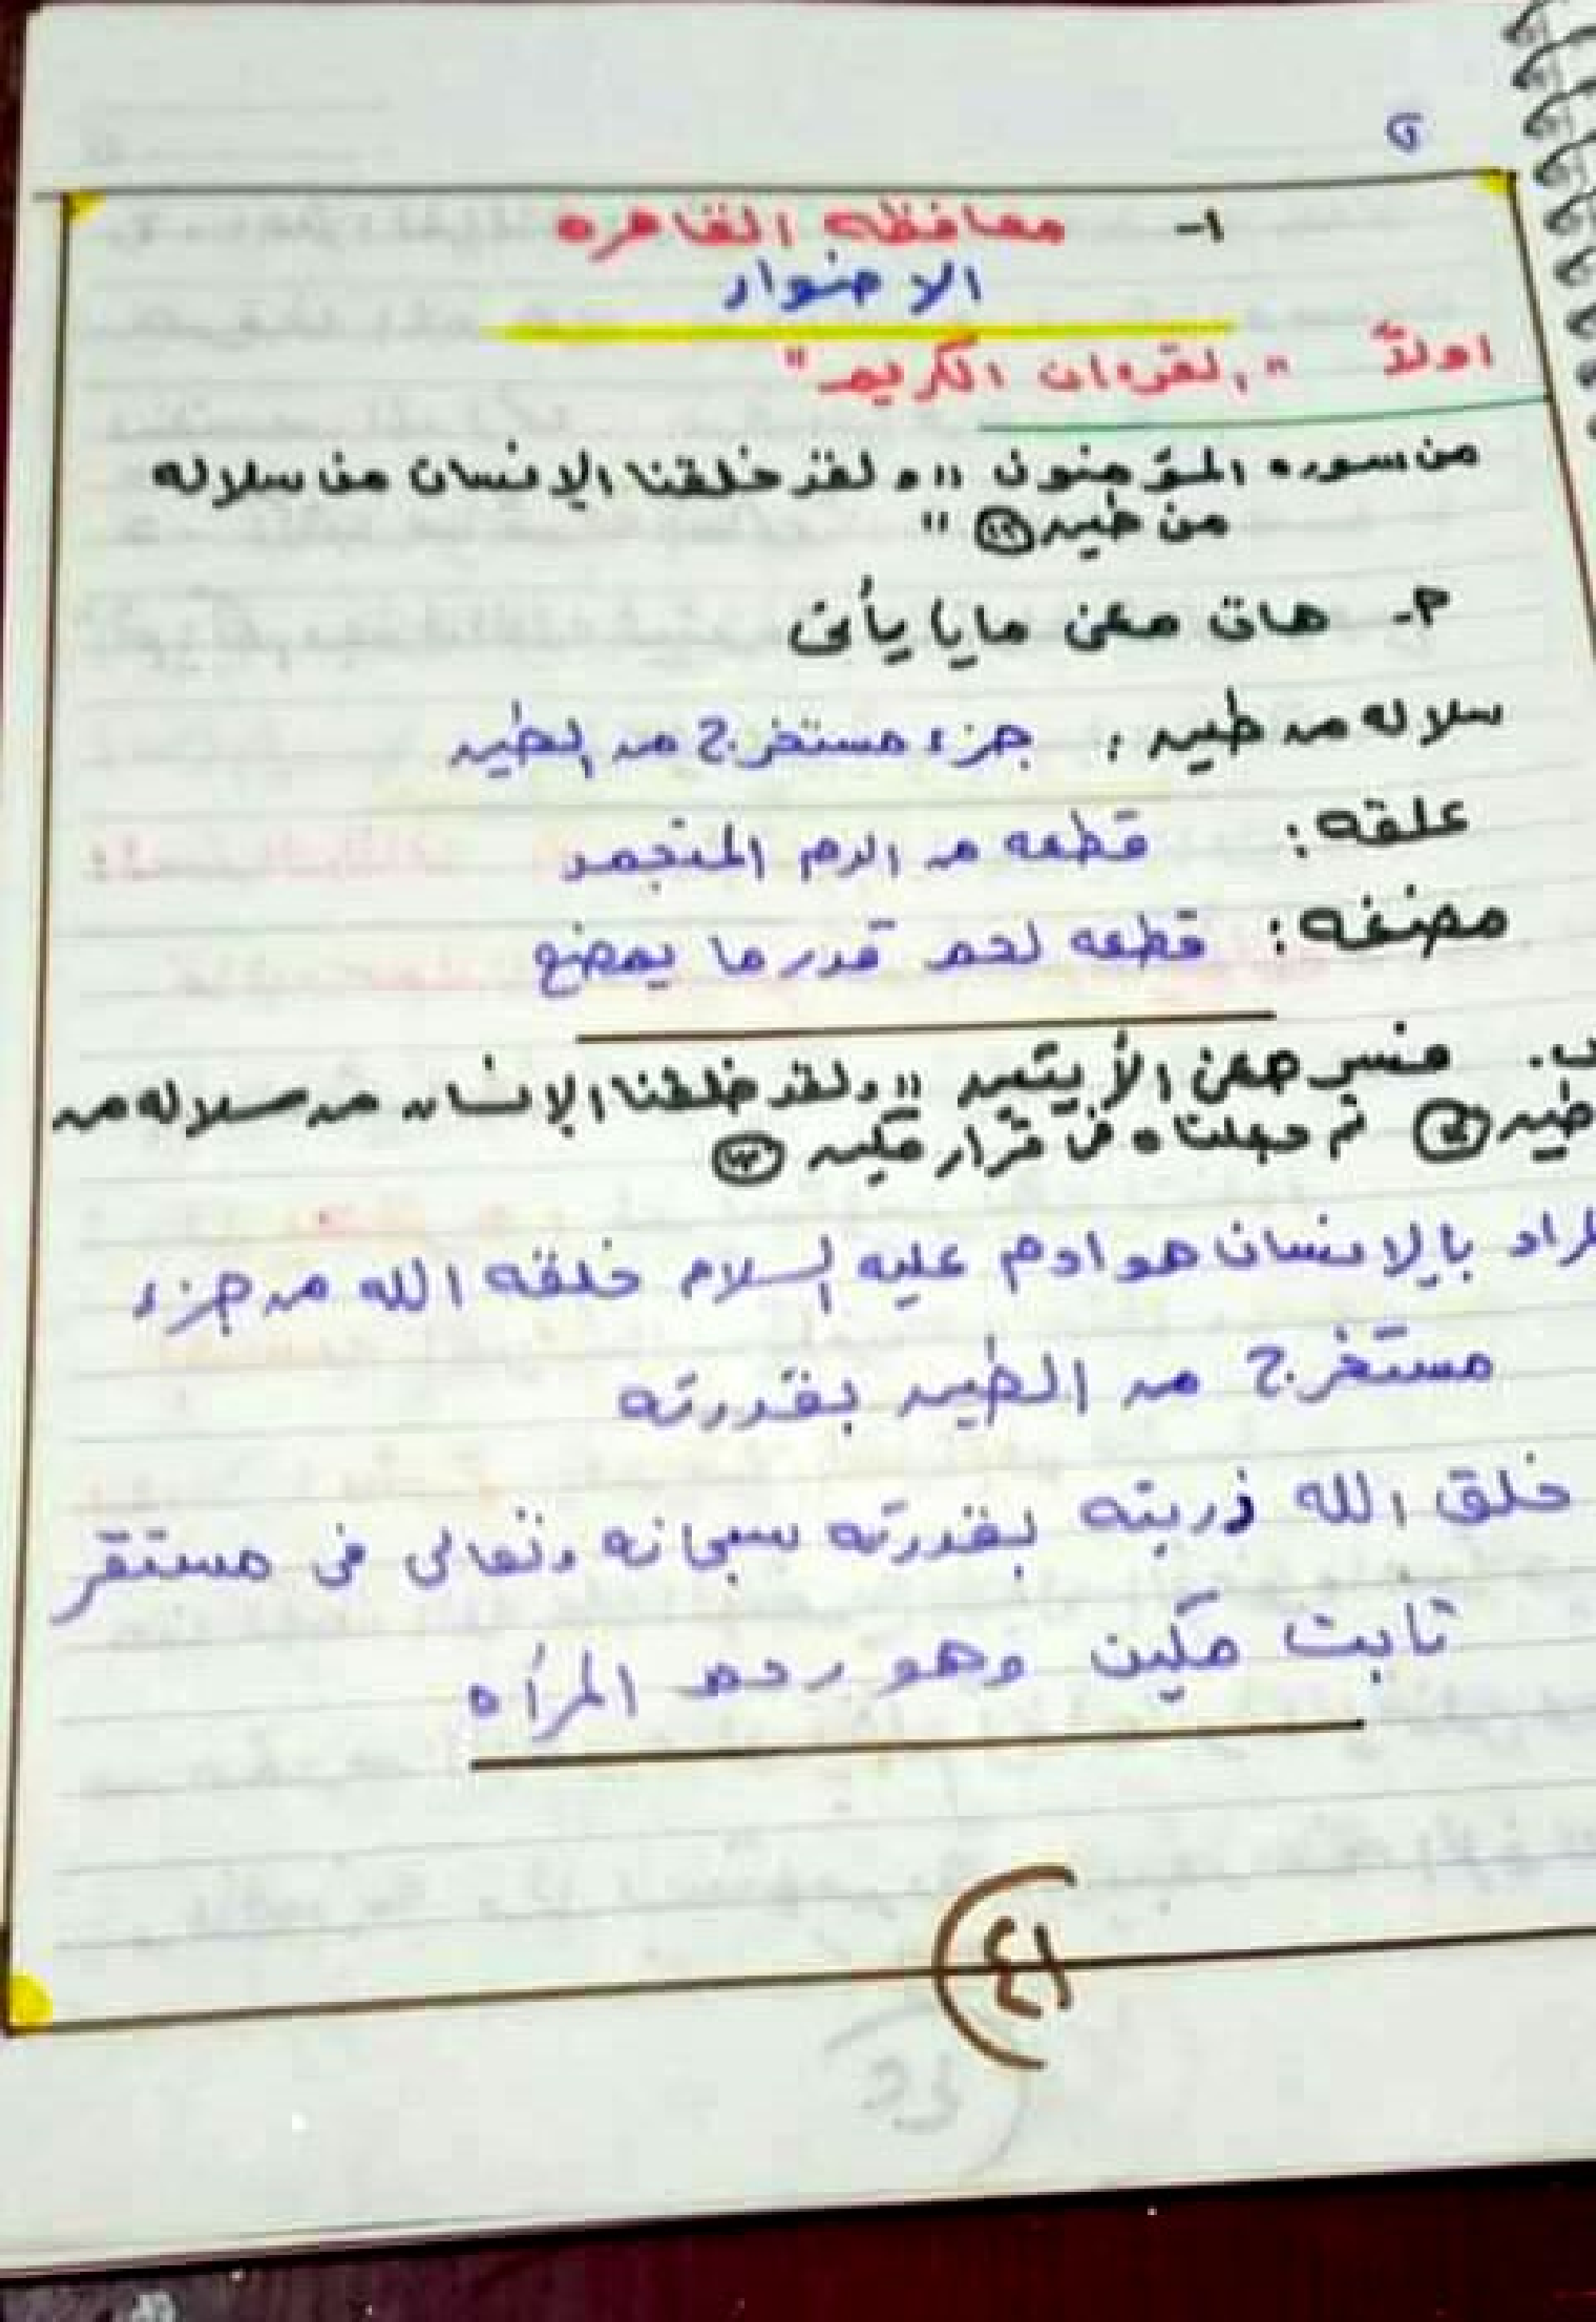 ١- محافظه القاهره
الاضوار
اولاً "القرءان الكريم"
من سوره المؤمنون "ولقد خلقنا الإنسان من سلاله
من طين (١٢)"
٢- هات معنى مايا يأتى
سلاله من طين : جزء مستخرج من الطين
علقه : قطعه من الدم المتجمد
مضغه : قطعه لحم قدر ما يمضغ
ب. فسر معنى الأيتين "ولقد خلقنا الإنسان من سلاله من
طين (١٢) ثم جعلناه فى قرار مكين (١٣)
المراد بالإنسان هو ادم عليه السلام خلقه الله من جزء
مستخرج من الطين بقدرته
خلق الله ذريته بقدرته سبحانه وتعالى فى مستقر
ثابت مكين وهو رحم المرأه
(٤١